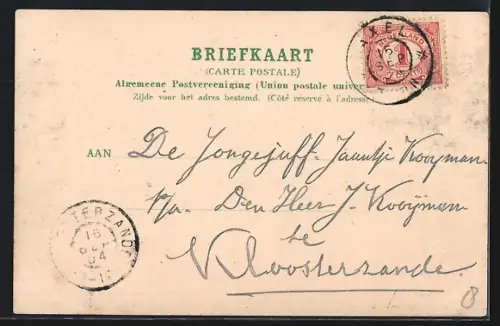 BRIEFKAART
(CARTE POSTALE)
Algemeene Postvereeniging (Union postale univer
Zijde voor het adres bestemd. (Côté réservé à l'adresse)
AXEL
NEDERLAND
AAN
De Jongejuff. Jaantje Kooijman
p/a. Den Heer J. Kooijman
te
Kloosterzande.
TERZAND
16
04
8